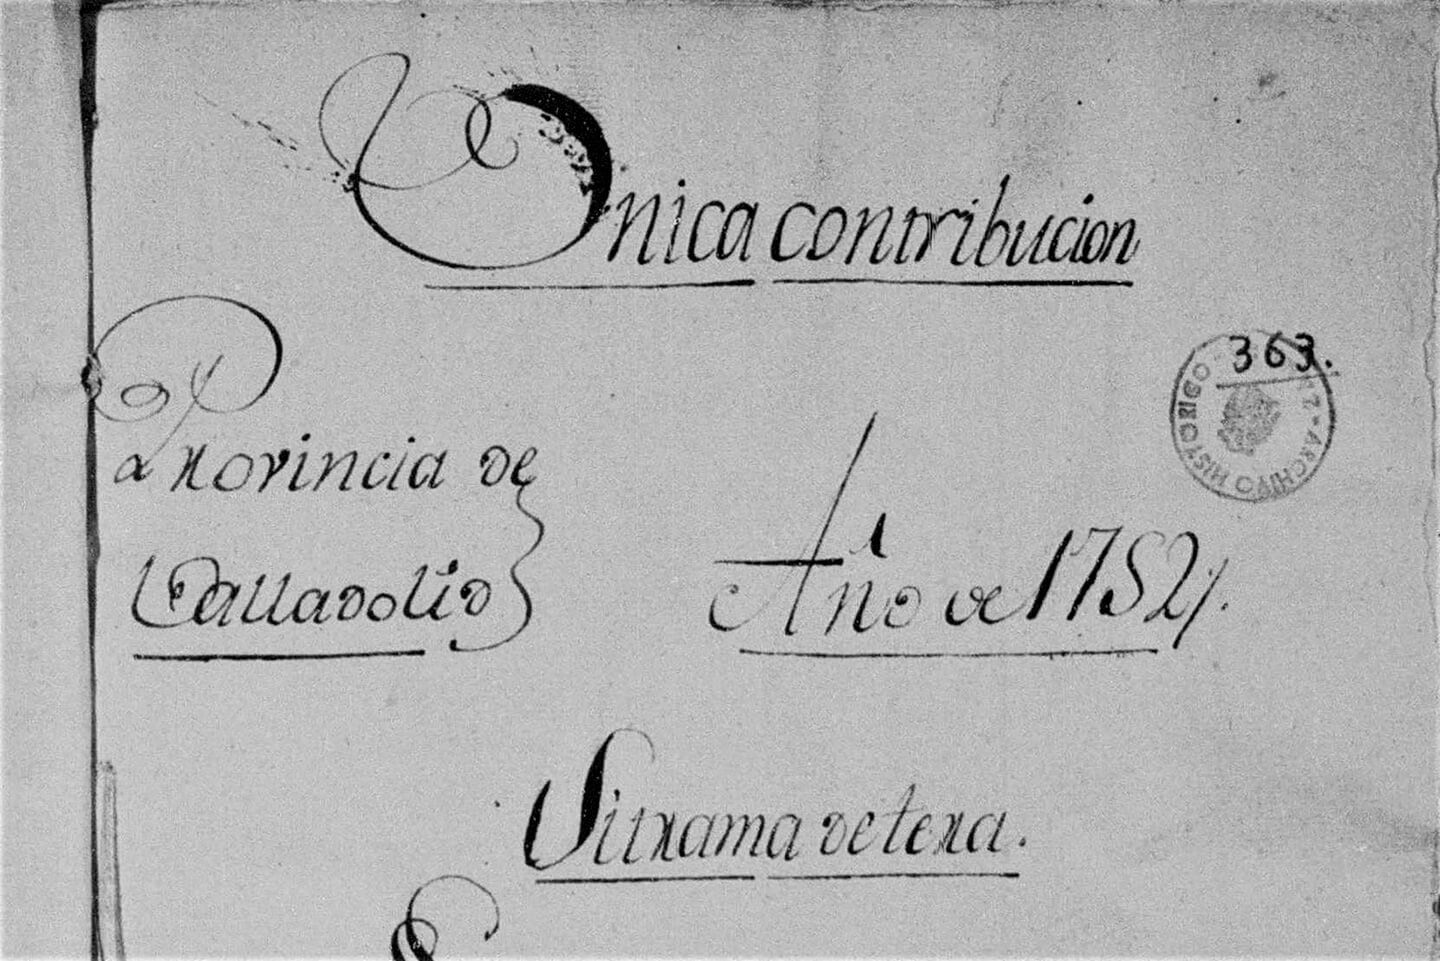 Unica contribucion
363.
ARCHIVO HISTORICO
Provincia de
Valladolid
Año de 1752,,.
Sitrama de tera.